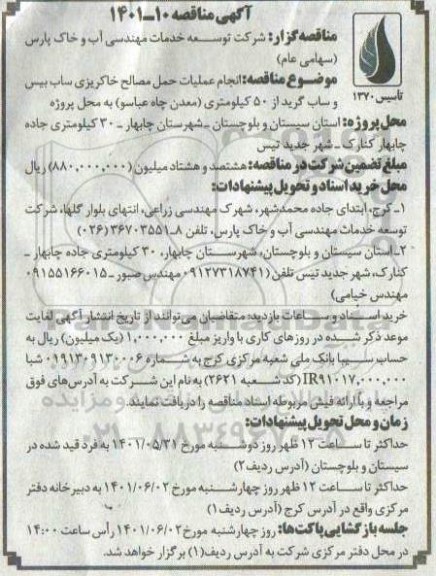 آگهی مناقصه ۱۰-۱۴۰۱
مناقصه‌گزار: شرکت توسعه خدمات مهندسی آب و خاک پارس
(سهامی عام)
موضوع مناقصه: انجام عملیات حمل مصالح خاکریزی ساب بیس
و ساب گرید از ۵۰ کیلومتری (معدن چاه عباسو) به محل پروژه
تاسیس ۱۳۷۰
محل پروژه: استان سیستان و بلوچستان ـ شهرستان چابهار ـ ۳۰ کیلومتری جاده
چابهار کنارک ـ شهر جدید تیس
مبلغ تضمین شرکت در مناقصه: هشتصد و هشتاد میلیون (۸۸۰,۰۰۰,۰۰۰) ریال
محل خرید اسناد و تحویل پیشنهادات:
۱ـ کرج، ابتدای جاده محمدشهر، شهرک مهندسی زراعی، انتهای بلوار گلها، شرکت
توسعه خدمات مهندسی آب و خاک پارس، تلفن ۸ـ۳۶۷۰۳۵۵۱ (۰۲۶)
۲ـ استان سیستان و بلوچستان، شهرستان چابهار، ۳۰ کیلومتری جاده چابهار ـ
کنارک، شهر جدید تیس تلفن (۰۹۱۲۷۳۱۸۷۴۱ مهندس صبور ـ ۰۹۱۵۵۱۶۶۰۱۵
مهندس خیامی)
خرید اسناد و ساعات بازدید: متقاضیان می‌توانند از تاریخ انتشار آگهی لغایت
موعد ذکر شده در روزهای کاری با واریز مبلغ ۱,۰۰۰,۰۰۰ (یک میلیون) ریال به
حساب سیبا بانک ملی شعبه مرکزی کرج به شماره ۰۱۹۱۳۰۹۱۳۰۰۰۶ شبا
(کد شعبه ۲۶۲۱) به نام این شرکت به آدرس‌های فوق
مراجعه و با ارائه فیش مربوطه اسناد مناقصه را دریافت نمایند.
زمان و محل تحویل پیشنهادات:
حداکثر تا ساعت ۱۲ ظهر روز دوشنبه مورخ ۱۴۰۱/۰۵/۳۱ به فرد قید شده در
سیستان و بلوچستان (آدرس ردیف ۲)
حداکثر تا ساعت ۱۲ ظهر روز چهارشنبه مورخ ۱۴۰۱/۰۶/۰۲ به دبیرخانه دفتر
مرکزی واقع در آدرس کرج (آدرس ردیف ۱)
جلسه بازگشایی پاکت‌ها: روز چهارشنبه مورخ ۱۴۰۱/۰۶/۰۲ رأس ساعت ۱۴:۰۰
در محل دفتر مرکزی شرکت به آدرس ردیف (۱) برگزار خواهد شد.